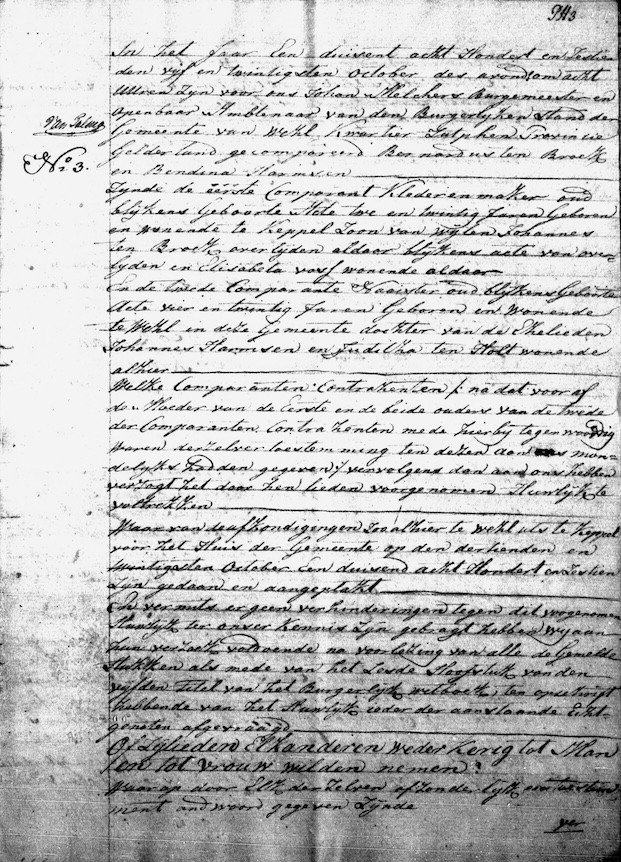 In het Jaar Een duisent acht Hondert en Zestien
den vijf en twintigsten October des avond om acht
Uuren Zijn voor ons Johan Melchers Burgemeester en
Openbaar Ambtenaar van den Burgerlyken Stand der
Gemeente van Wehl Kwartier Zutphen Provincie
Gelderland gecompareerd Bernardus ten Broek
en Bendina Harmsen
N:o 3.
Zynde de eerste Comparant Klederenmaker oud
blykens Geboorte Acte twe en twintig Jaren Geboren
en wonende te Keppel Zoon van wylen Johannes
ten Broek overlyden aldaar blykens acte van over-
lyden en Elisabeta vos wonende aldaar
En de twede Comparante Naaister oud blykens Geboorte
Acte vier en twintig Jaren Geboren en wonende
te Wehl in deze Gemeente dochter van de Ehelieden
Johannes Harmsen en Judith ten Holt wonende
alhier
Welke Comparanten Contrahenten /: na dat voor af
de Moeder van de Eerste en de beide ouders van de twede
der Comparanten Contrahenten mede hierby tegenwoordig
waren derzelver toestemming ten dezen aan ons mon-
delyk hadden gegeven :/ vervolgens den aan ons hebben
verzogt het door hen lieden voorgenomen Huwlyk te
voltrekken
Waar van de afkondigengen Zo alhier te Wehl als te Keppel
voor het Huis der Gemeente op den dertienden en
twintigsten October Een duisend acht Hondert en Zestien
Zyn gedaan en aangeplakt
En vermits er geen verhinderingen tegen dit voorgenomen
Huwlyk ter onser Kennis Zyn gebragt hebben wy aan
hun verzoek voldoende na voorlezing van alle de Gemelde
Stukken als mede van het Zesde Hoofstuk van den
vyfden Titel van het Burgerlyk wetboek, ten opschrift
hebbende van het Huwlyk ieder der aanstaande Echt-
genoten afgevraagd
Of Zylieden Elkanderen weder Kerig tot Man
en tot vrouw wilden nemen?
Waar op door Elk derzelven afzonderlyk een toestem-
ment andwoord gegeven Zynde
ver